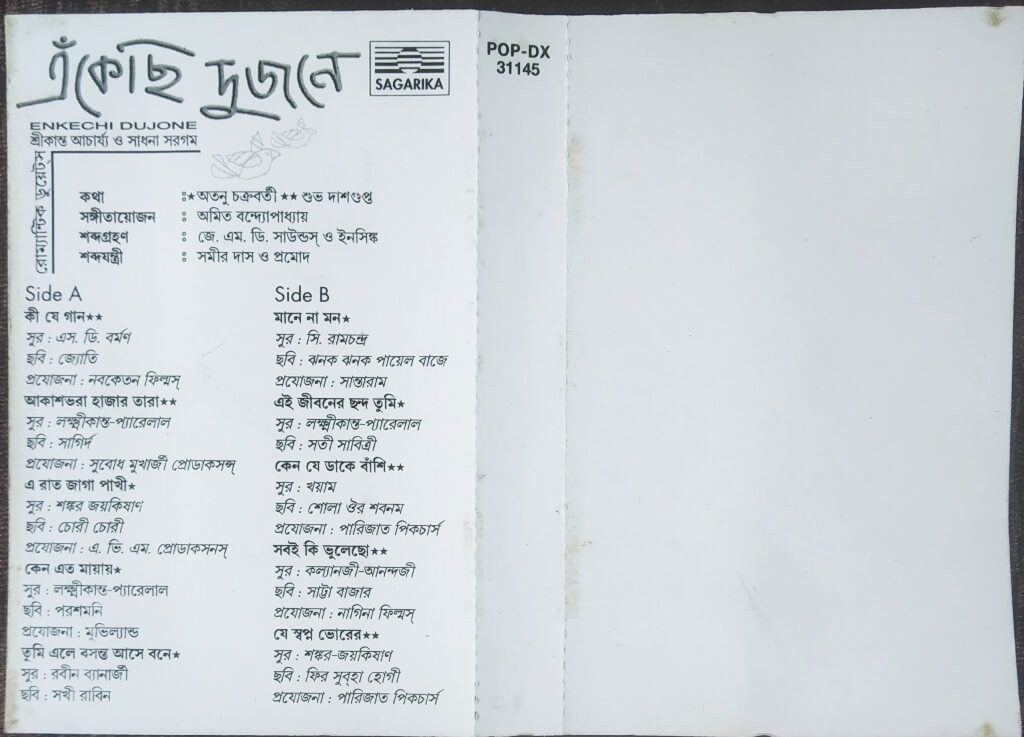 এঁকেছি দুজনে
SAGARIKA
ENKECHI DUJONE
শ্রীকান্ত আচার্য্য ও সাধনা সরগম
রোম্যান্টিক ডুয়েটস্
কথা :★ অতনু চক্রবর্তী ★★ শুভ দাশগুপ্ত
সঙ্গীতায়োজন : অমিত বন্দ্যোপাধ্যায়
শব্দগ্রহণ : জে. এম. ডি. সাউন্ডস্ ও ইনসিঙ্ক
শব্দযন্ত্রী : সমীর দাস ও প্রমোদ
Side A
কী যে গান★★
সুর : এস. ডি. বর্মণ
ছবি : জ্যোতি
প্রযোজনা : নবকেতন ফিল্মস্
আকাশভরা হাজার তারা★★
সুর : লক্ষ্মীকান্ত-প্যারেলাল
ছবি : সাগির্দ
প্রযোজনা : সুবোধ মুখার্জী প্রোডাকসন্স্
এ রাত জাগা পাখী★
সুর : শঙ্কর জয়কিষাণ
ছবি : চোরী চোরী
প্রযোজনা : এ. ভি. এম. প্রোডাকসনস্
কেন এত মায়ায়★
সুর : লক্ষ্মীকান্ত-প্যারেলাল
ছবি : পরশমনি
প্রযোজনা : মুভিল্যান্ড
তুমি এলে বসন্ত আসে বনে★
সুর : রবীন ব্যানার্জী
ছবি : সখী রাবিন
Side B
মানে না মন★
সুর : সি. রামচন্দ্র
ছবি : ঝনক ঝনক পায়েল বাজে
প্রযোজনা : সান্তারাম
এই জীবনের ছন্দ তুমি★
সুর : লক্ষ্মীকান্ত-প্যারেলাল
ছবি : সতী সাবিত্রী
কেন যে ডাকে বাঁশি★★
সুর : খয়াম
ছবি : শোলা ঔর শবনম
প্রযোজনা : পারিজাত পিকচার্স
সবই কি ভুলেছো★★
সুর : কল্যানজী-আনন্দজী
ছবি : সাট্টা বাজার
প্রযোজনা : নাগিনা ফিল্মস্
যে স্বপ্ন ভোরের★★
সুর : শঙ্কর-জয়কিষাণ
ছবি : ফির সুব্‌হা হোগী
প্রযোজনা : পারিজাত পিকচার্স
POP-DX
31145